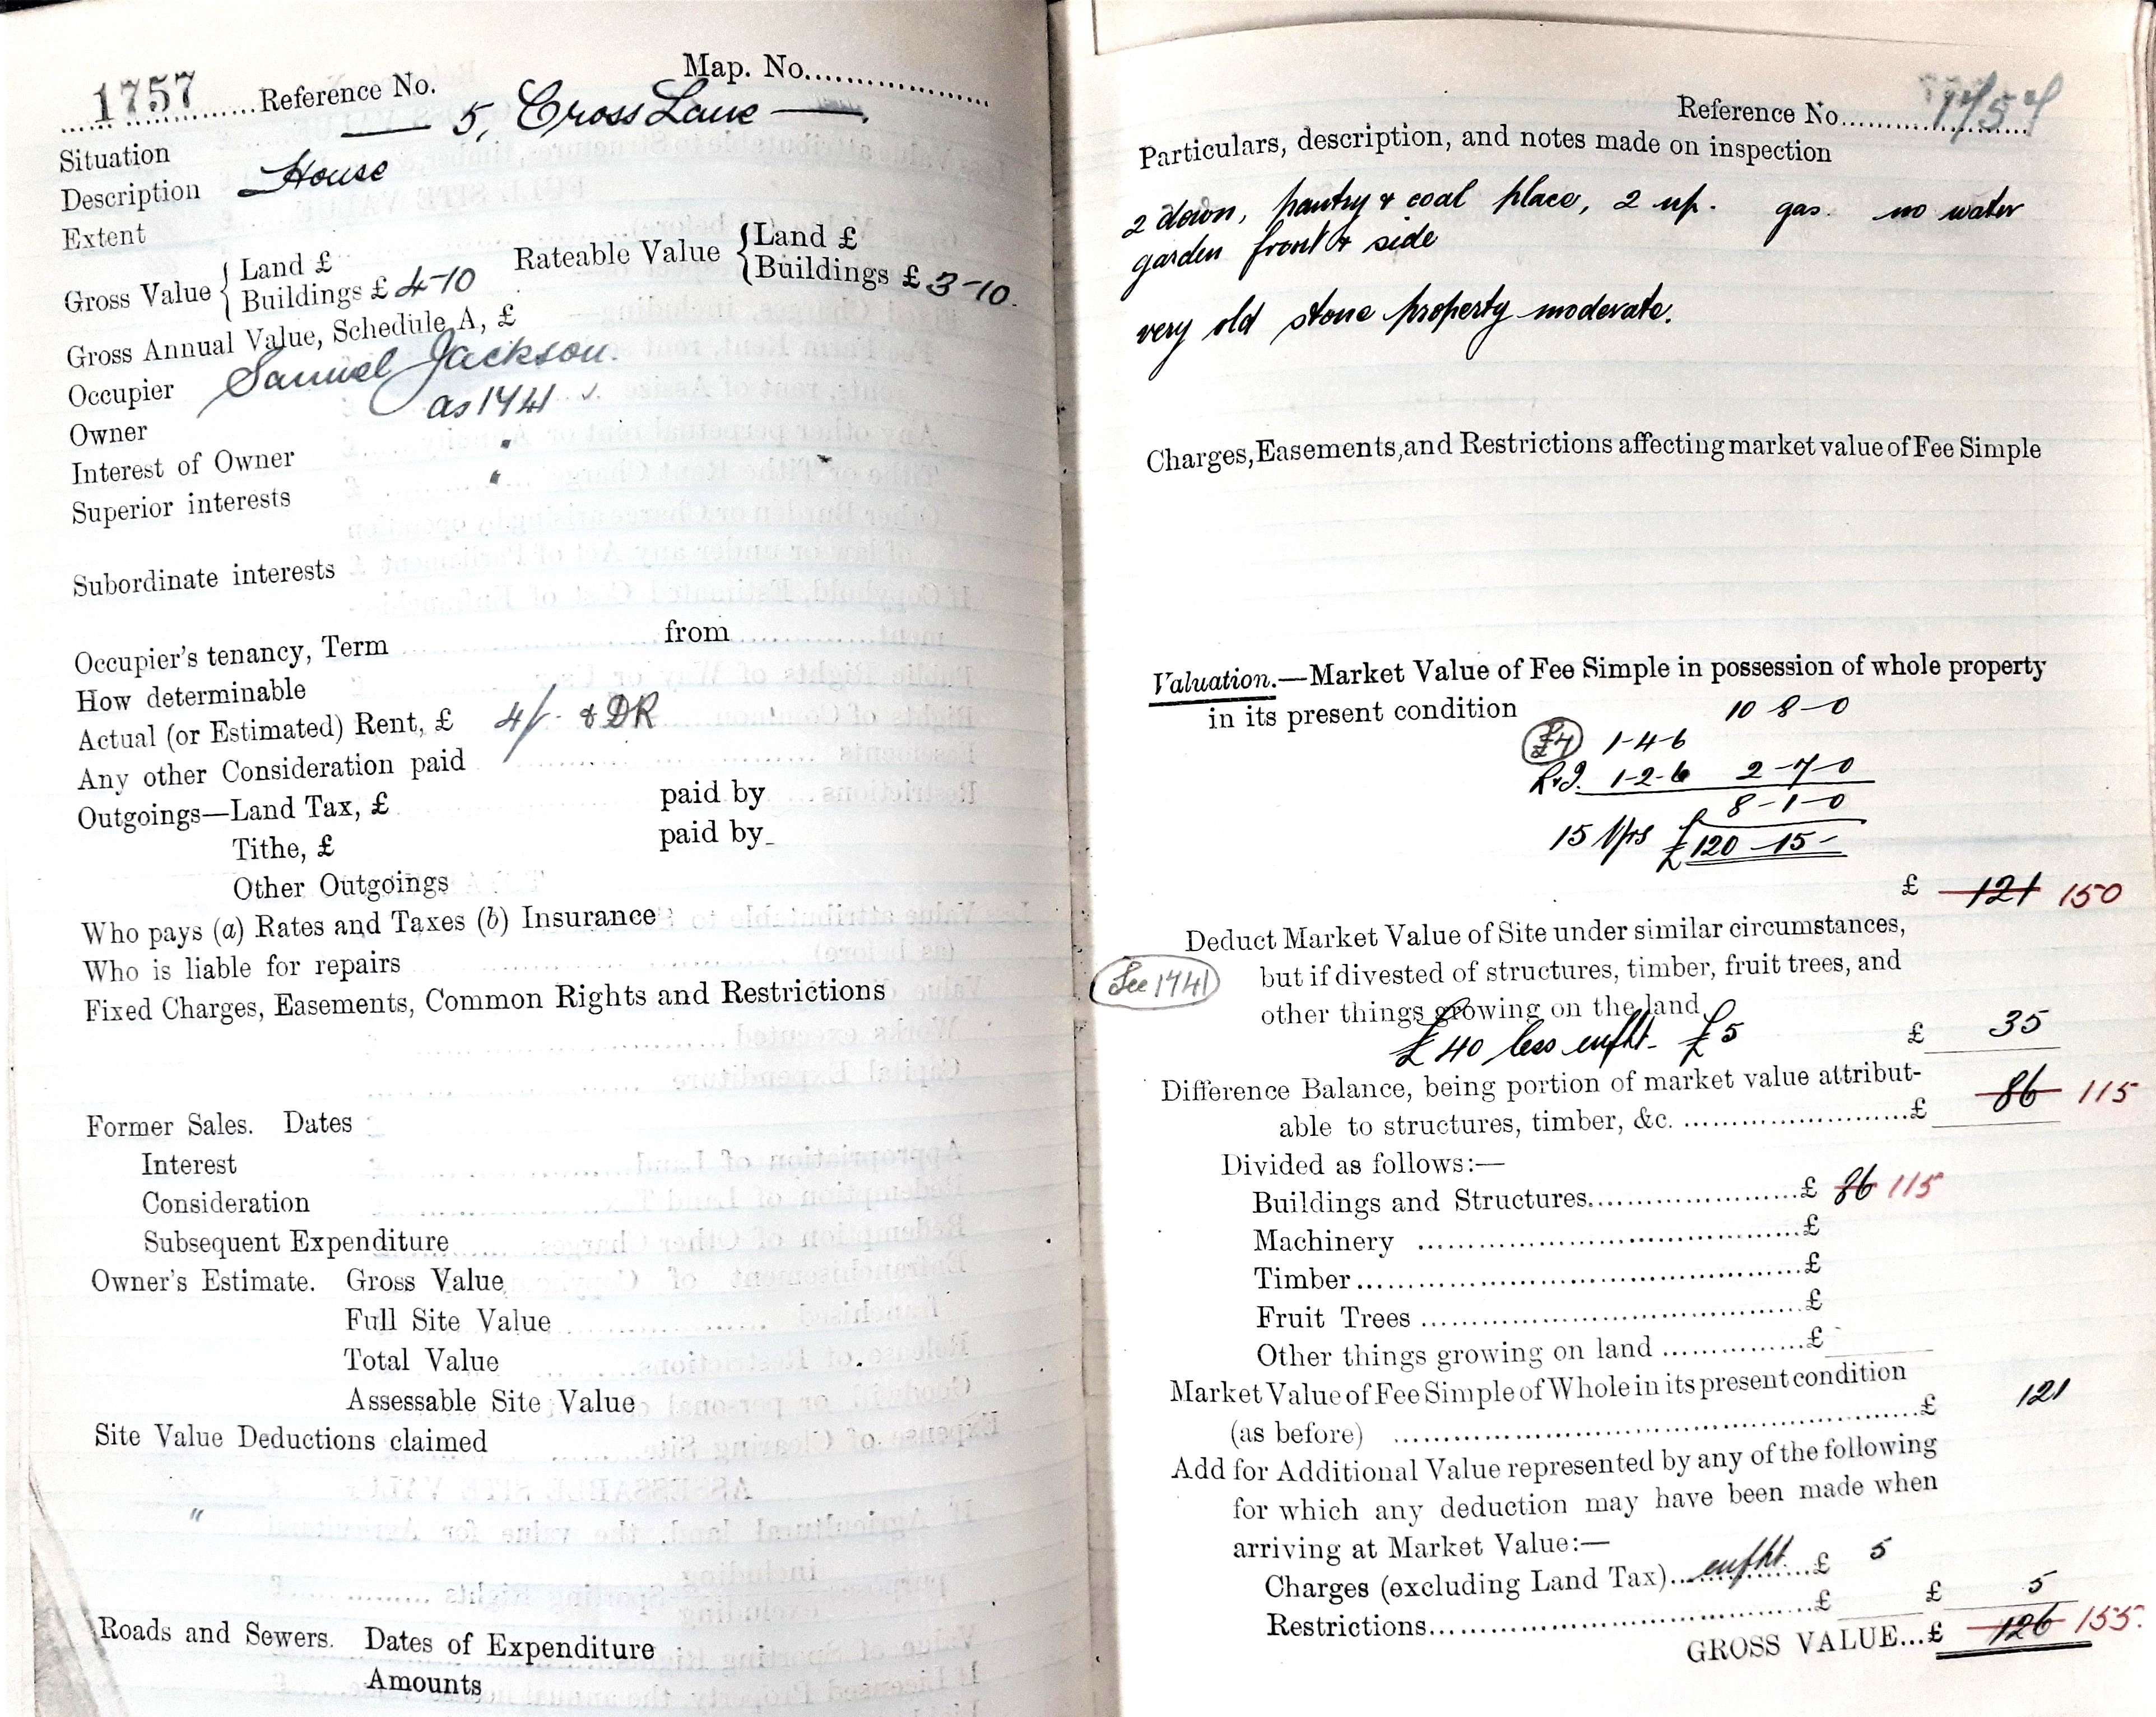 1757 Reference No. Map. No.
5, Cross Lane
Situation
Description House
Extent
Gross Value { Land £ Rateable Value { Land £
Buildings £ 4-10 Buildings £ 3-10.
Gross Annual Value, Schedule A, £
Occupier Samuel Jackson.
as 1741 ✓
Owner
Interest of Owner "
Superior interests "
Subordinate interests
Occupier's tenancy, Term from
How determinable
Actual (or Estimated) Rent, £ 4/- & DR
Any other Consideration paid
Outgoings—Land Tax, £ paid by
Tithe, £ paid by
Other Outgoings
Who pays (a) Rates and Taxes (b) Insurance
Who is liable for repairs
Fixed Charges, Easements, Common Rights and Restrictions
Former Sales. Dates
Interest
Consideration
Subsequent Expenditure
Owner's Estimate. Gross Value
Full Site Value
Total Value
Assessable Site Value
Site Value Deductions claimed
"
Roads and Sewers. Dates of Expenditure
Amounts
Reference No. 1757
Particulars, description, and notes made on inspection
2 down, pantry & coal place, 2 up. gas. no water
garden front & side
very old stone property moderate.
Charges, Easements, and Restrictions affecting market value of Fee Simple
Valuation.—Market Value of Fee Simple in possession of whole property
in its present condition 10 8-0
£4 1-4-6
1-2-6 2-7-0
8-1-0
15 Yrs £120-15-
£ 121 150
Deduct Market Value of Site under similar circumstances,
but if divested of structures, timber, fruit trees, and
See 1741
other things growing on the land
£40 less enfht. £5 £ 35
Difference Balance, being portion of market value attribut-
able to structures, timber, &c. £ 86 115
Divided as follows:—
Buildings and Structures £ 86 115
Machinery £
Timber £
Fruit Trees £
Other things growing on land £
Market Value of Fee Simple of Whole in its present condition
(as before) £ 121
Add for Additional Value represented by any of the following
for which any deduction may have been made when
arriving at Market Value:—
Charges (excluding Land Tax) enfht. £ 5
Restrictions £ £ 5
GROSS VALUE...£ 126 155.